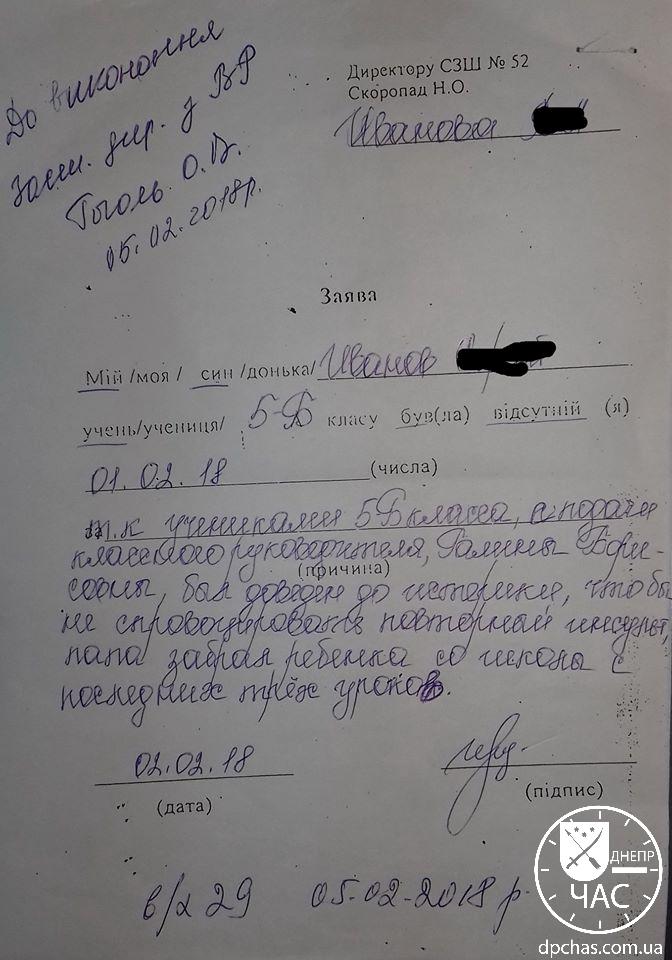 До виконання
Директору СЗШ № 52
заст. дир. з ВР
Скоропад Н.О.
Гоголь О.В.
Иванова
05.02.2018р.
Заява
Мій /моя / син /донька/ Иванов
учень/учениця/ 5-Б класу був(ла) відсутній (я)
01.02.18 (числа)
т.к учениками 5Б класса, с подачи
классного руководителя, Галины Бори-
(причина)
совны, был доведен до истерики, чтобы
не спровоцировать повторный инсульт,
папа забрал ребенка со школы с
последних трёх уроков.
02.02.18
(дата)
(підпис)
в/х 29 05-02-2018 р.
ДНЕПР
ЧАС
dpchas.com.ua